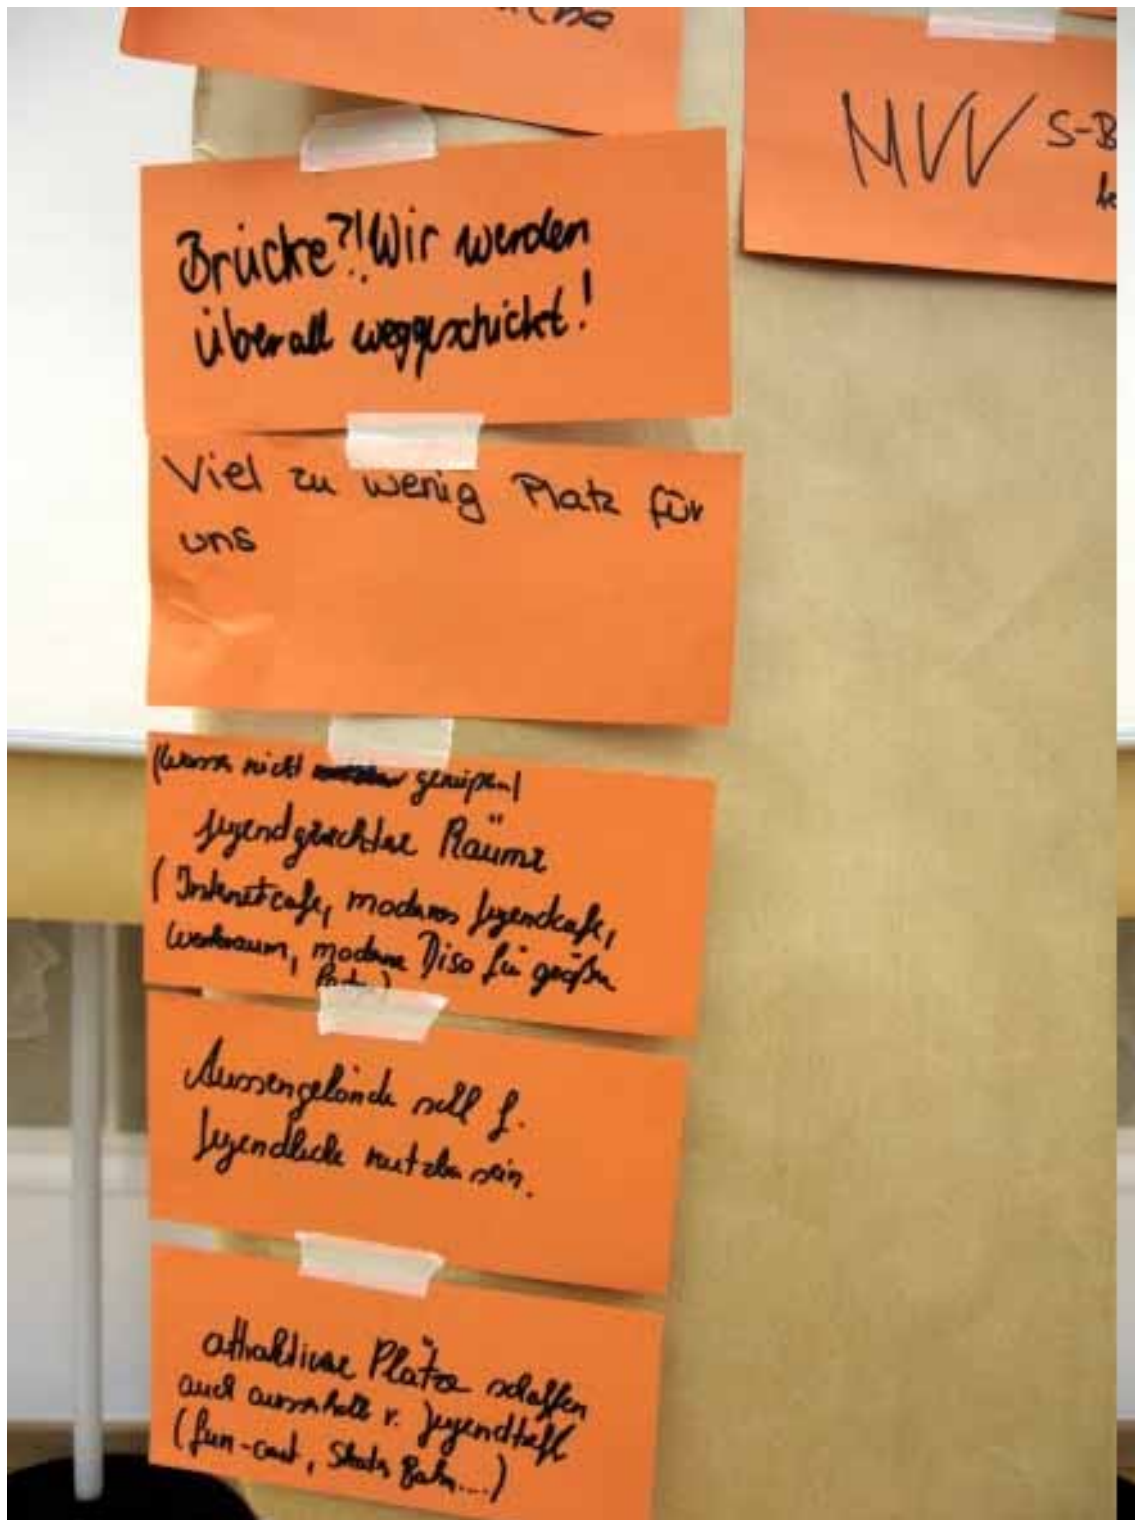 MVV S-B
Brücke?! Wir werden
überall weggeschickt!
Viel zu wenig Platz für
uns
nicht
Jugendgerechte Räume
(Internetcafe, modernes Jugendcafe,
Werkraum, moderne Diso für größere
Aussengelände soll f.
Jugendliche nutzbar sein.
attraktive Plätze schaffen
auch ausserhalb v. Jugendtreff
(fun-court, Skater Bahn...)